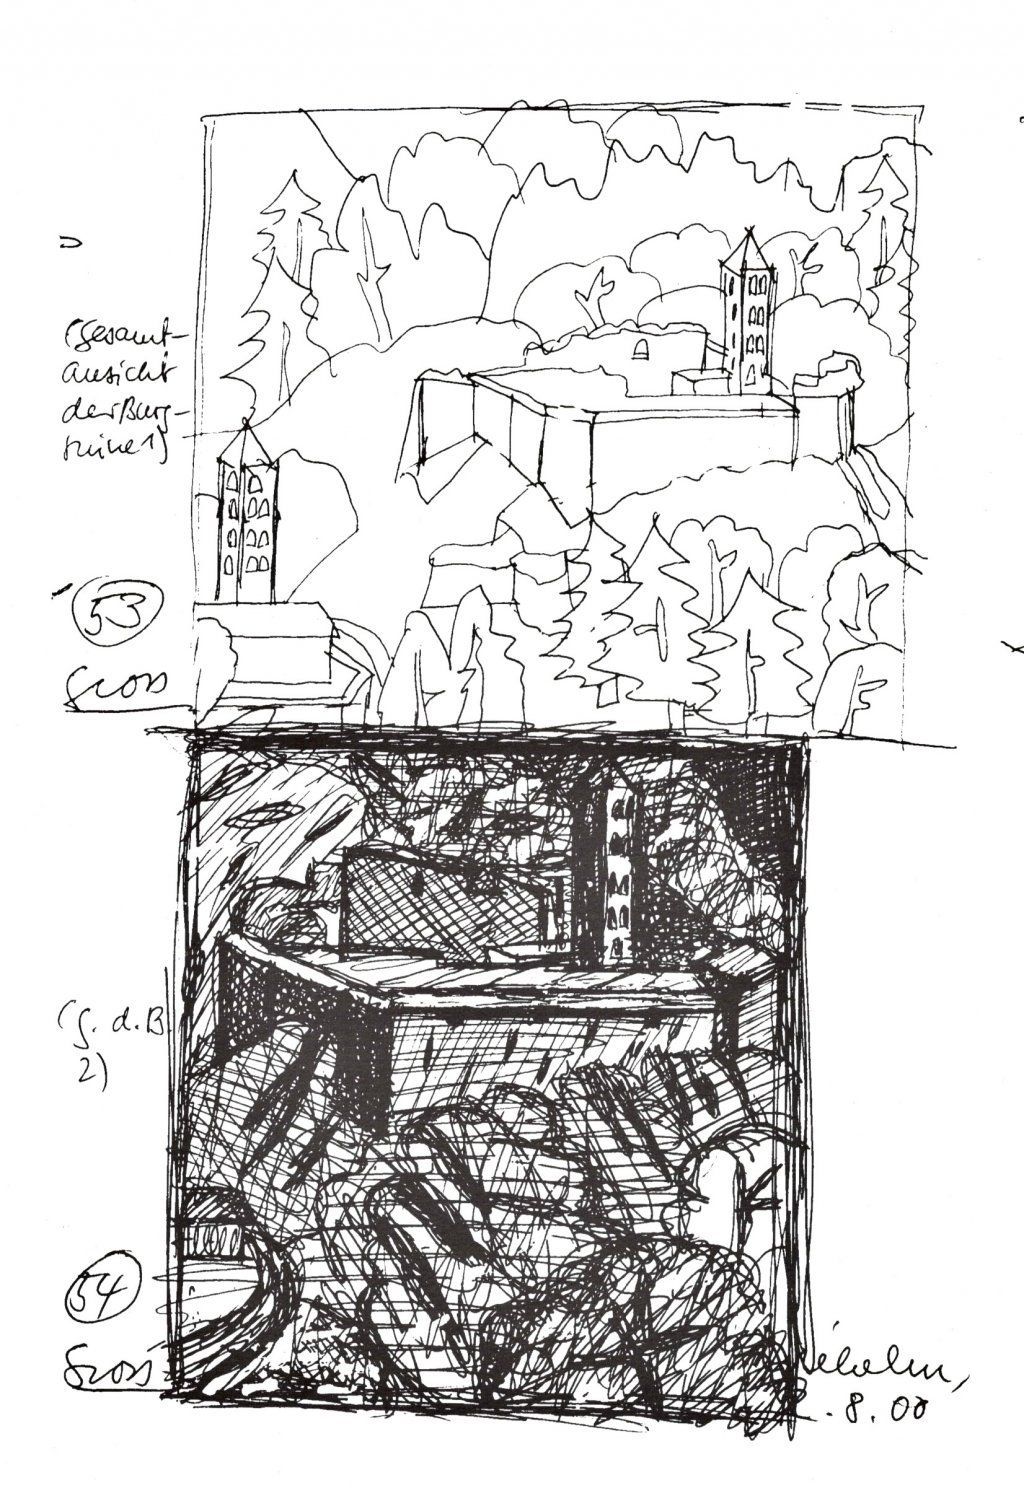 (Gesamt-
ansicht
der Burg-
ruine 1)
53
Gross
(G. d. B.
2)
54
Gross
8.00